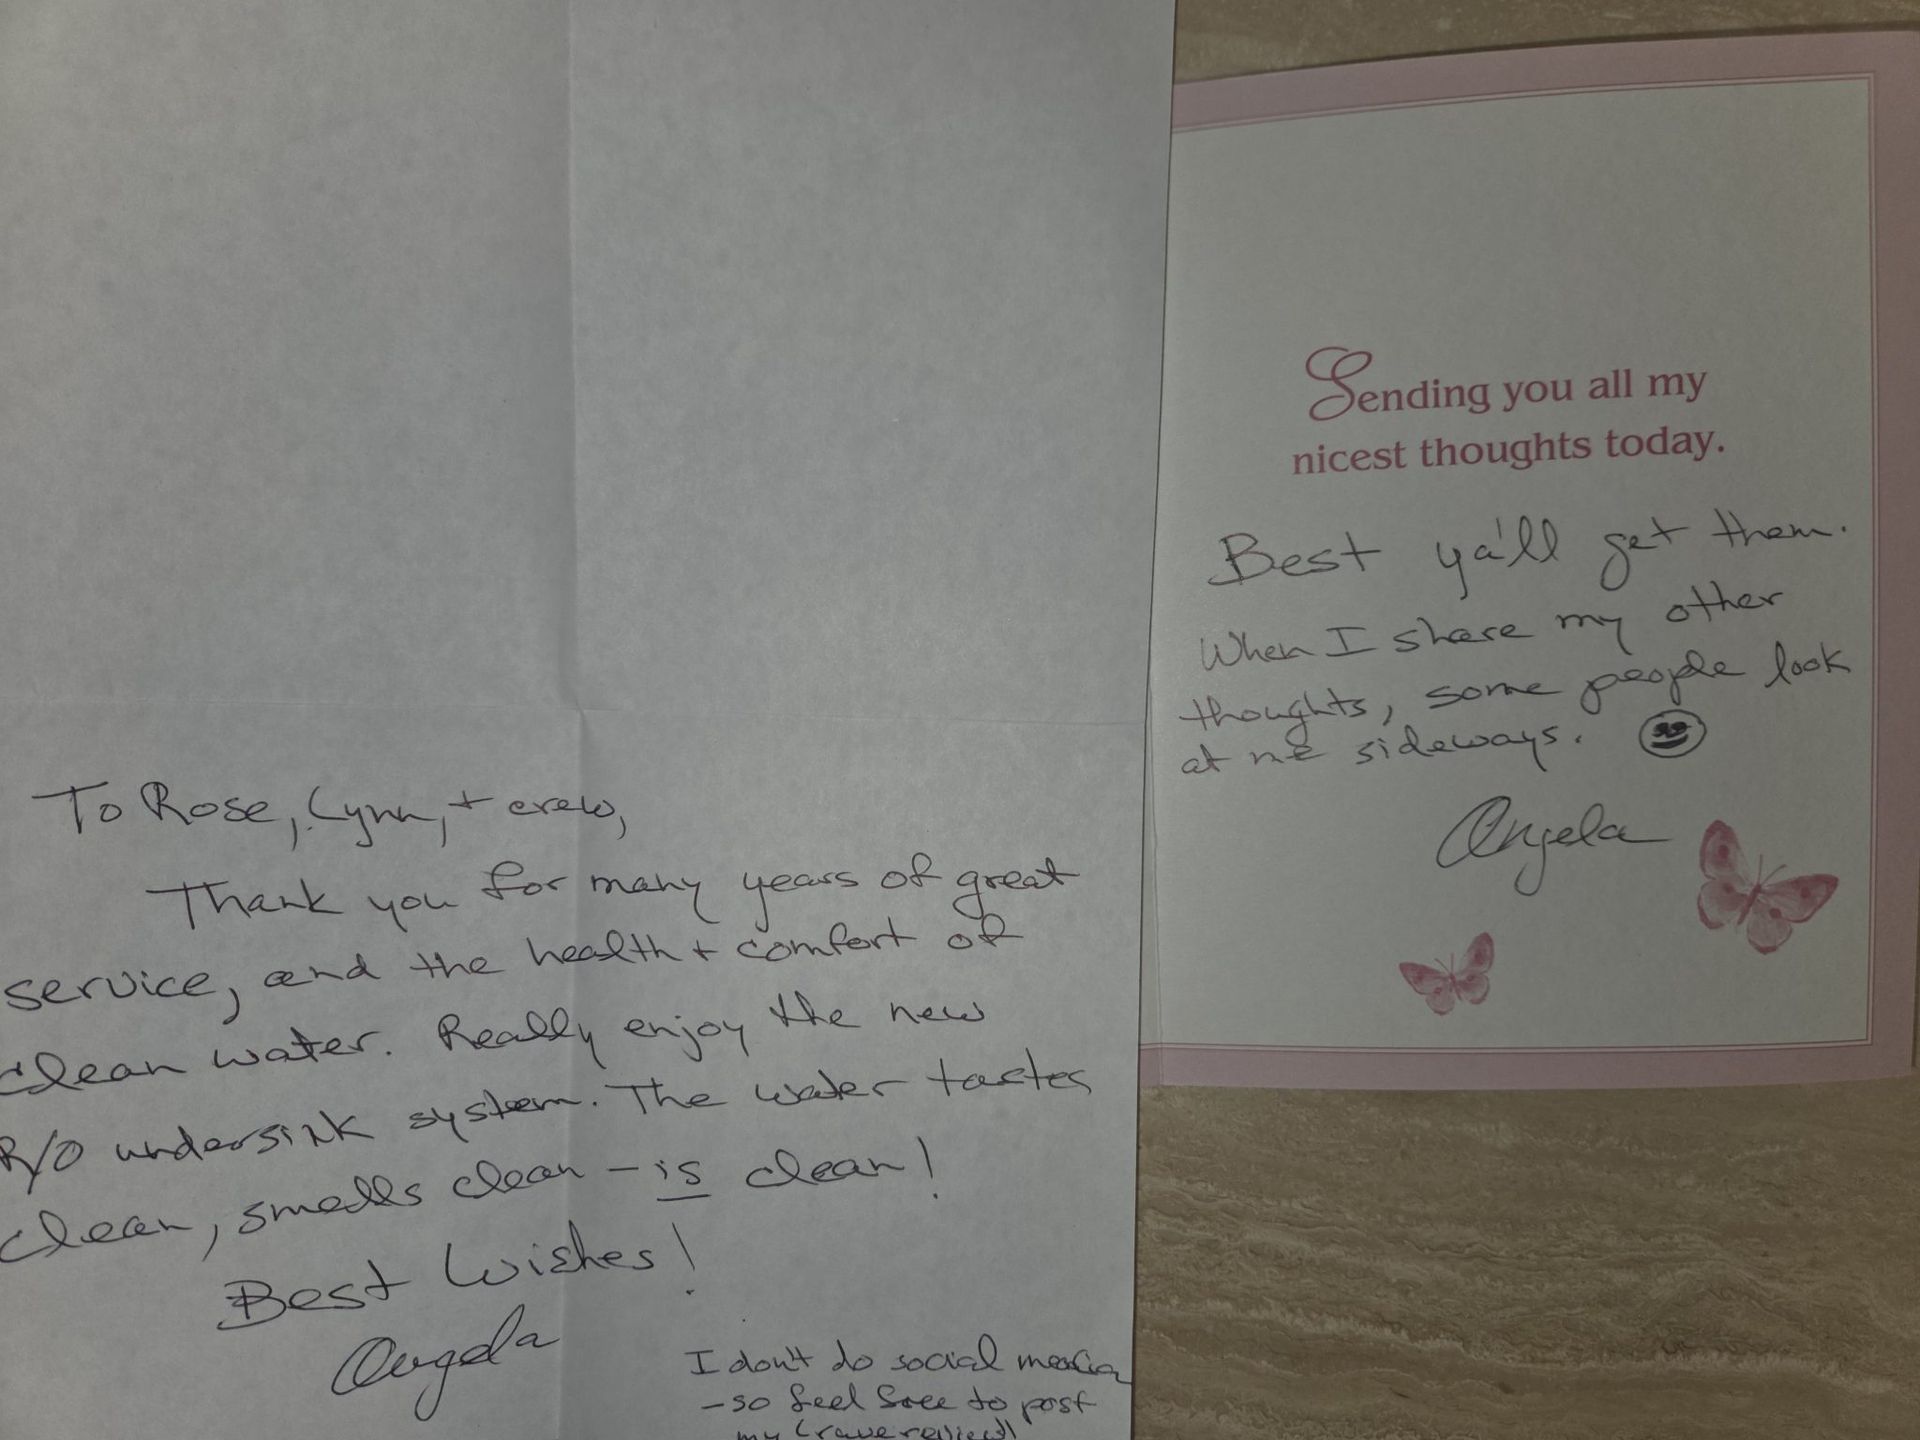 To Rose, Lynn, + crew,
Thank you for many years of great
service, and the health + comfort of
clean water. Really enjoy the new
R/O undersink system. The water tastes
clean, smells clean – is clean!
Best Wishes!
Angela
I don't do social media
– so feel free to post
my (rave review)
Sending you all my
nicest thoughts today.
Best ya'll get them.
When I share my other
thoughts, some people look
at me sideways.
Angela